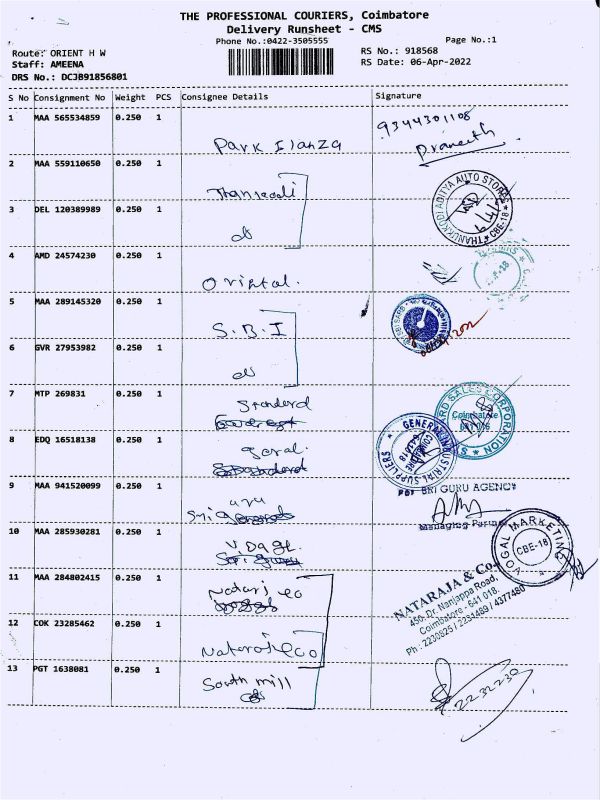 THE PROFESSIONAL COURIERS, Coimbatore
Delivery Runsheet - CMS
Phone No.:0422-3505555
Page No.:1
Route: ORIENT H W
RS No.: 918568
Staff: AMEENA
RS Date: 06-Apr-2022
DRS No.: DCJB91856801
S No Consignment No Weight PCS Consignee Details Signature
1 MAA 565534859 0.250 1
9344301108
Park Ilanza
Praneeth
2 MAA 559110650 0.250 1
THANUKKODI ADITYA AUTO STORES * CBE-18 *
3 DEL 120389989 0.250 1
do
4 AMD 24574230 0.250 1
5 MAA 289145320 0.250 1
S.B.I
6 GVR 27953982 0.250 1
do
7 MTP 269831 0.250 1
Standard
ARD SALES CORPORATION
Coimbatore
8 EDQ 16518138 0.250 1
GENERAL INDUSTRIAL SUPPLIERS
COIMBATORE
641018
9 MAA 941520099 0.250 1
SRI GURU AGENCY
Sri
Managing Partner
10 MAA 285930281 0.250 1
OGAL MARKETING
CBE-18
11 MAA 284802415 0.250 1
NATARAJA & Co.,
450, Dr. Nanjappa Road,
Coimbatore - 641 018.
Ph : 2230825 / 2231489 / 4377480
12 COK 23285462 0.250 1
13 PGT 1638081 0.250 1
South mill
2232230